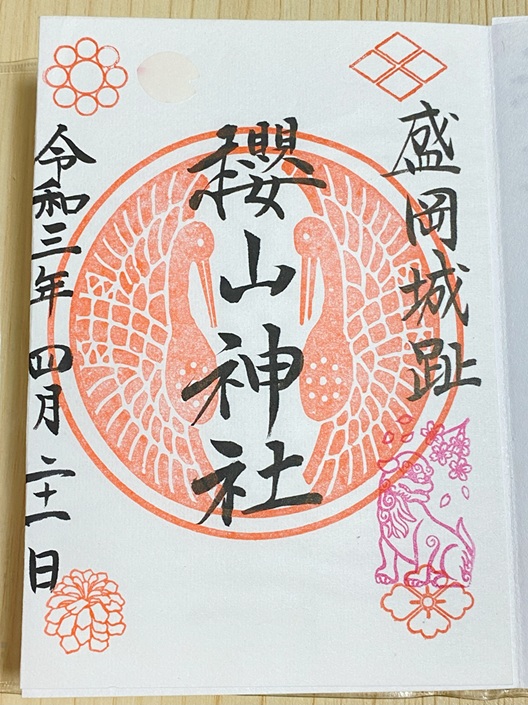 盛岡城趾
櫻山神社
令和三年四月二十一日